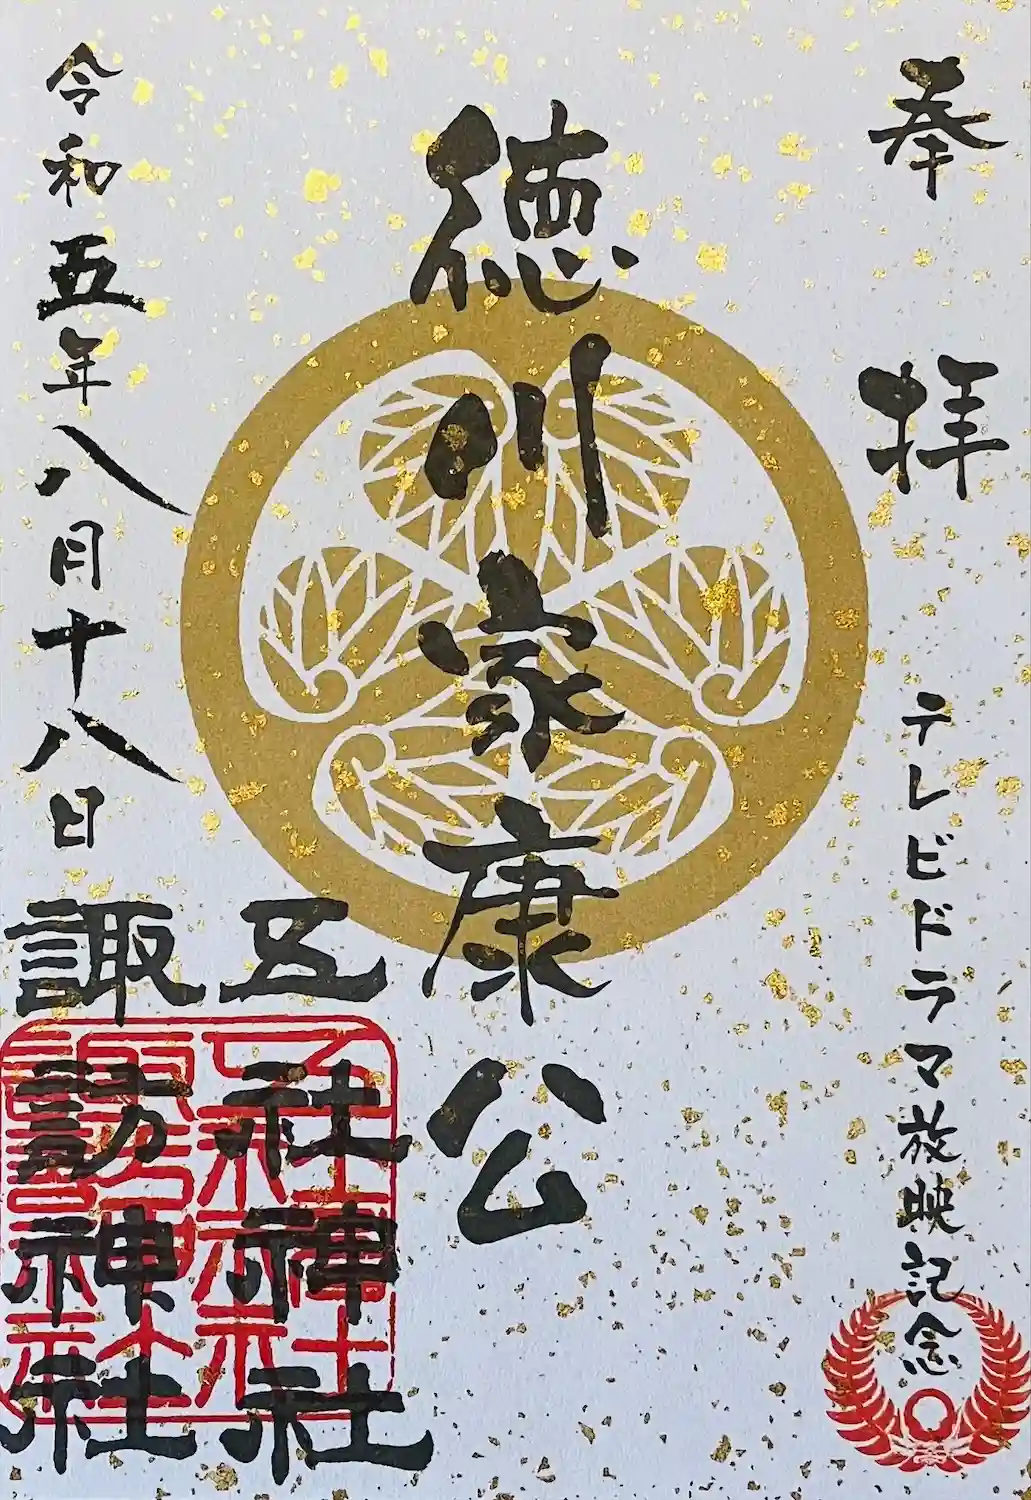 奉拝
テレビドラマ放映記念
徳川家康公
五社神社
諏訪神社
令和五年八月十八日